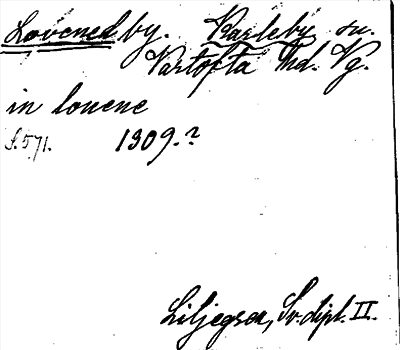 Lovened by. Karleby sn.
Vartofta hd. Vg.
in louene
S. 571. 1309.?
Liljegren, Sv. dipl. II.